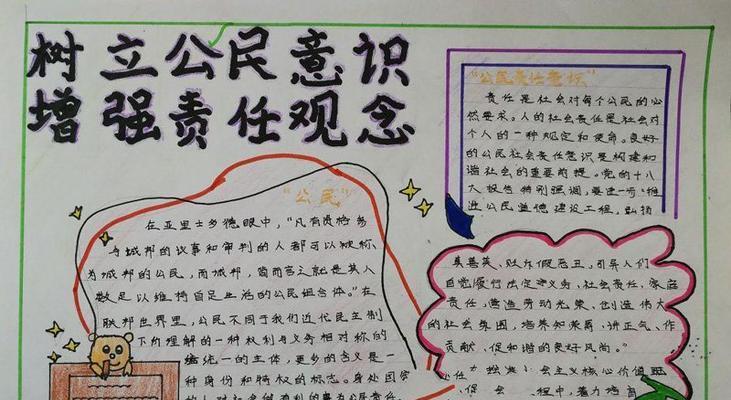 树立公民意识
增强责任观念
"公民责任意识"
责任是社会对每个公民的必
然要求。人的社会责任是社会对
个人的一种规定和使命。良好
的公民社会责任意识是构建和
谐社会的重要前提。党的十八
大报告特别强调,要进一步推
进公民道德建设工程,弘扬
真善美、贬斥假恶丑,引导人们
自觉履行法定义务,社会责任,家庭
责任,营造劳动光荣、创造伟大
的社会氛围,培养知荣辱、讲正气、作
贡献、促和谐的良好风尚。"
社会主义核心价值观
程中,着力培育
"公民"
在亚里士多德眼中,"凡有资格参
与城邦的议事和审判的人都可以被称
为城邦的公民,而城邦,简而言之就是其人
数足以维持自足生活的公民组合体。"在
联邦世界里,公民不同于我们近代民主制
下所理解的一种权利与义务相对称的
统一的主体,更多的含义是一
种身份和特权的标志。身处团